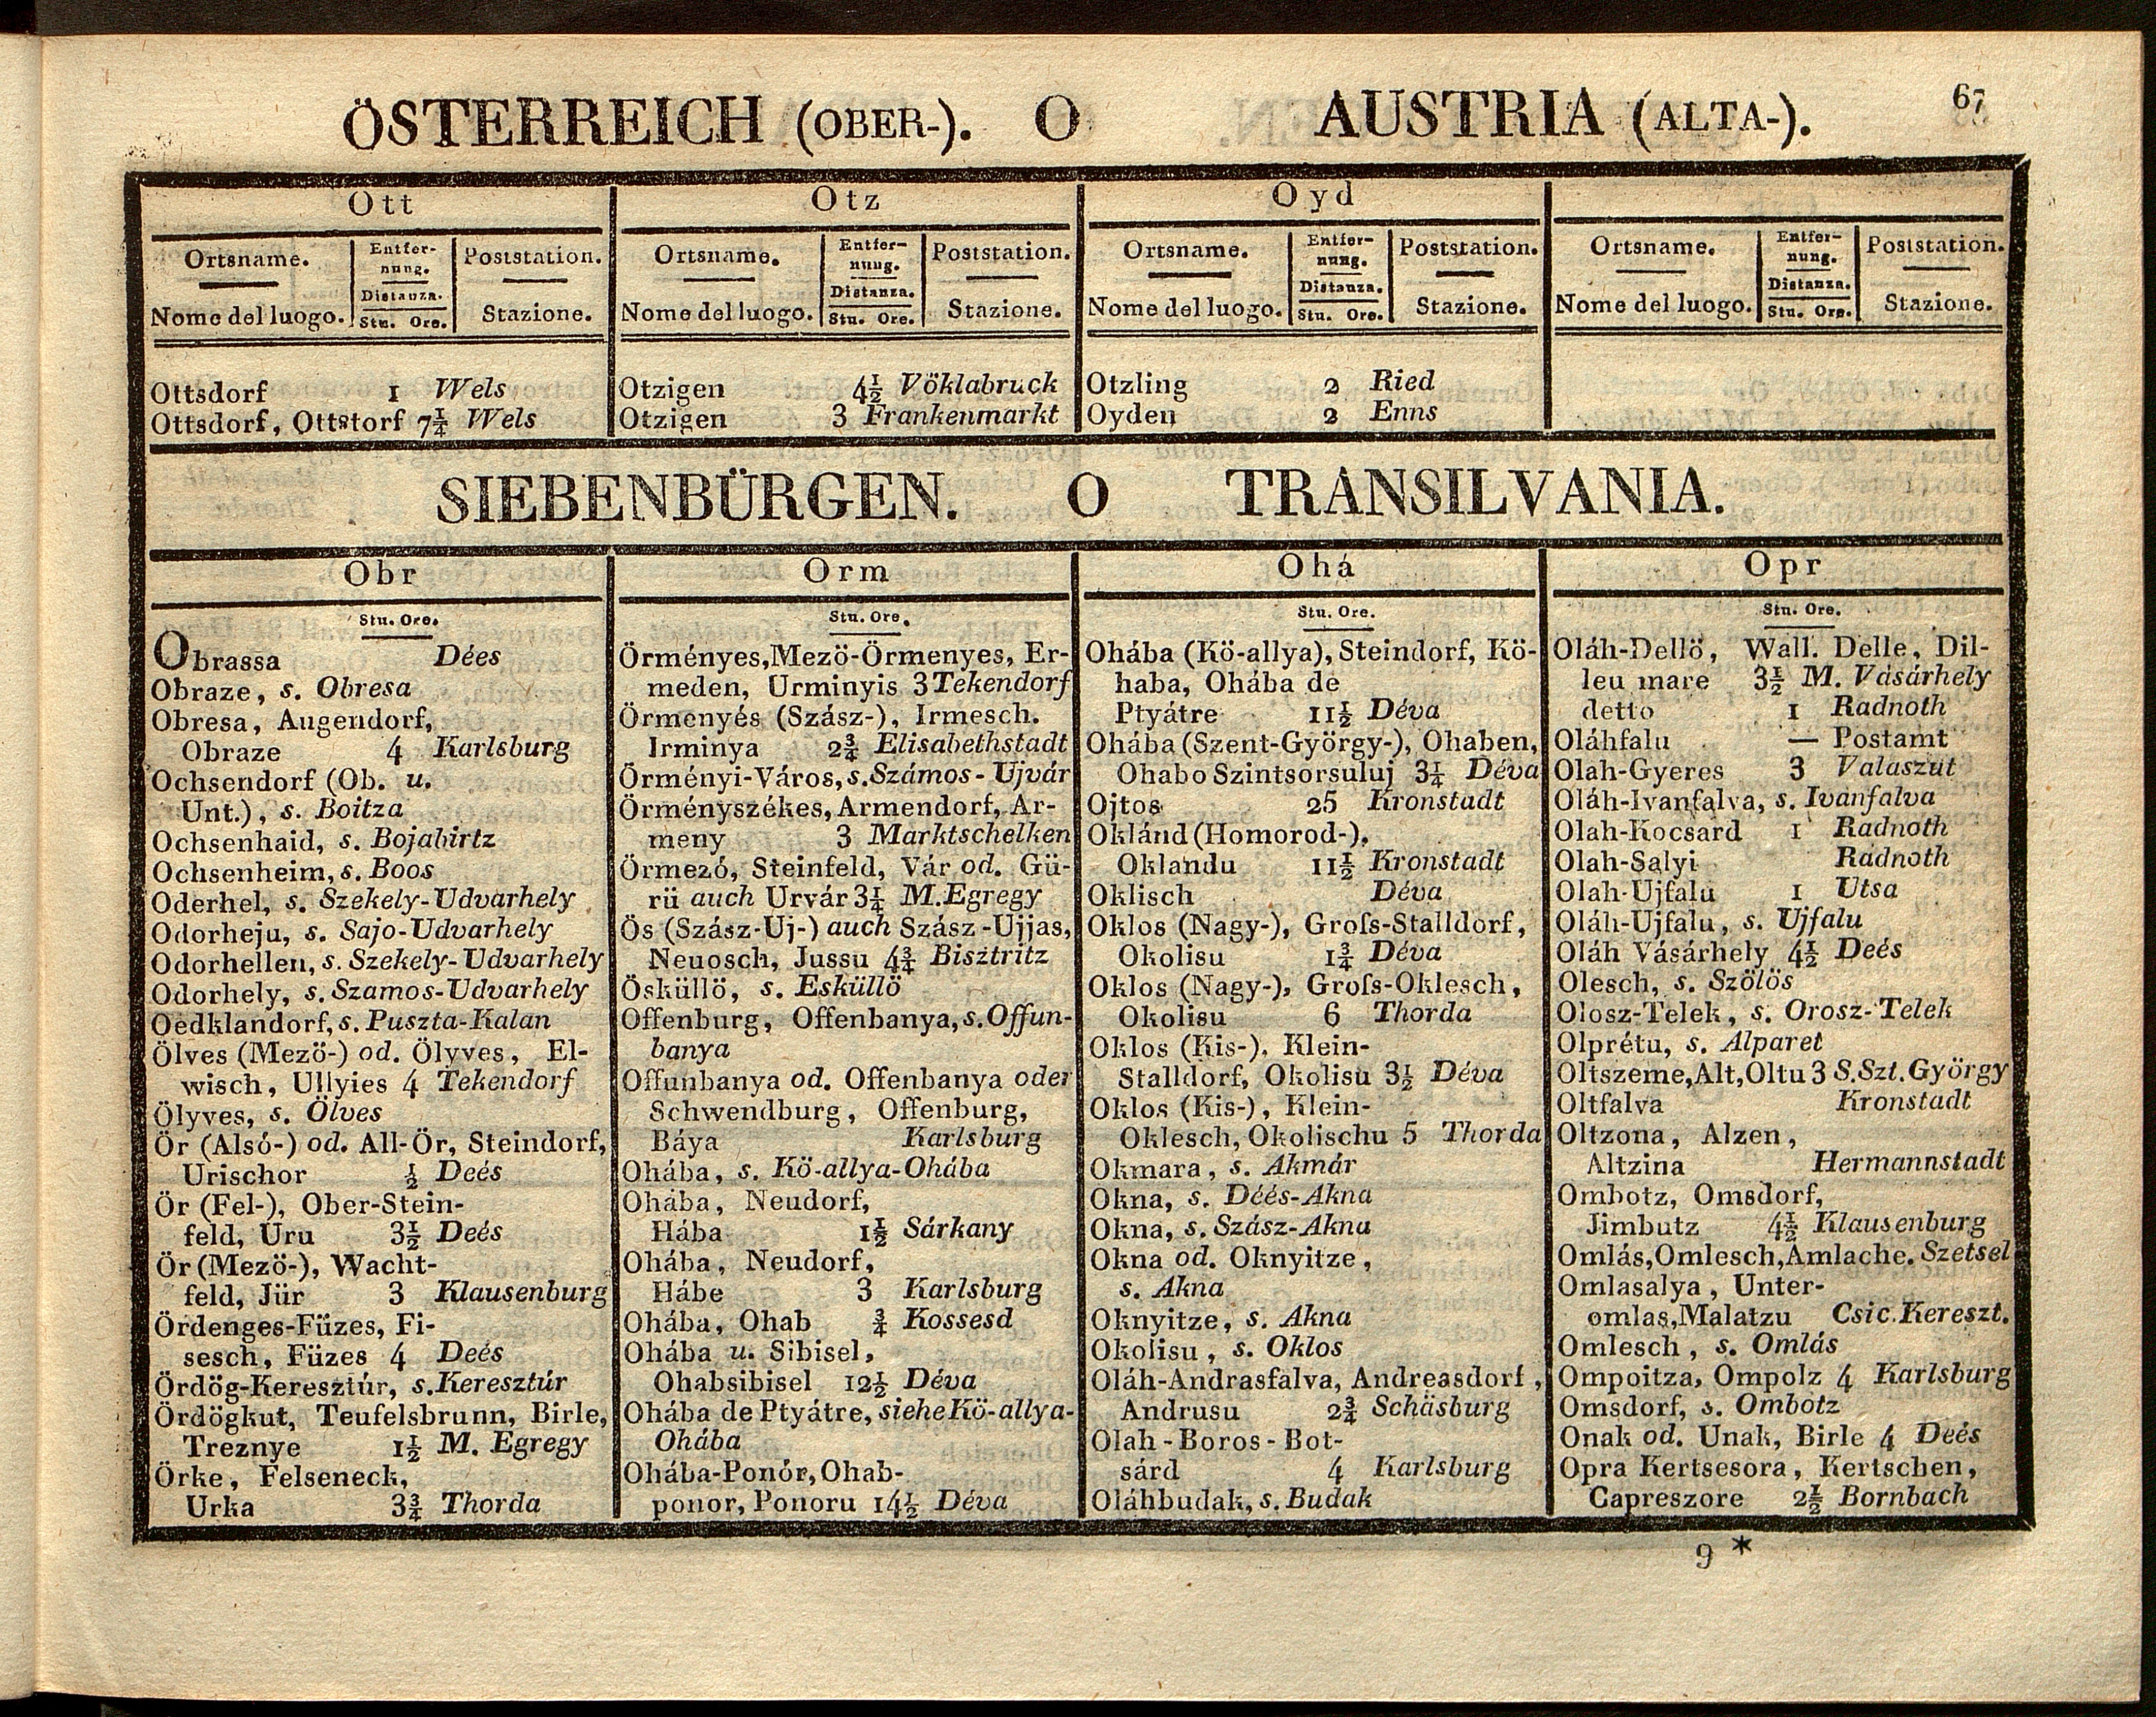 ÖSTERREICH (OBER-). O AUSTRIA (ALTA-). 67
Ott
Ortsname. Entfer-nung. Poststation.
Nome del luogo. Distanza. Stu. Ore. Stazione.
Ottsdorf 1 Wels
Ottsdorf, Ottstorf 7¼ Wels
Otz
Ortsname. Entfer-nung. Poststation.
Nome del luogo. Distanza. Stu. Ore. Stazione.
Otzigen 4½ Vöklabruck
Otzigen 3 Frankenmarkt
Oyd
Ortsname. Entfer-nung. Poststation.
Nome del luogo. Distanza. Stu. Ore. Stazione.
Otzling 2 Ried
Oyden 2 Enns
Ortsname. Entfer-nung. Poststation.
Nome del luogo. Distanza. Stu. Ore. Stazione.
SIEBENBÜRGEN. O TRANSILVANIA.
Obr
Stu. Ore.
Obrassa Dées
Obraze, s. Obresa
Obresa, Augendorf,
Obraze 4 Karlsburg
Ochsendorf (Ob. u.
Unt.), s. Boitza
Ochsenhaid, s. Bojahirtz
Ochsenheim, s. Boos
Oderhel, s. Szekely-Udvarhely
Odorheju, s. Sajo-Udvarhely
Odorhellen, s. Szekely-Udvarhely
Odorhely, s. Szamos-Udvarhely
Oedklandorf, s. Puszta-Kalan
Ölves (Mezö-) od. Ölyves, El-
wisch, Ullyies 4 Tekendorf
Ölyves, s. Ölves
Ör (Alsó-) od. All-Ör, Steindorf,
Urischor ½ Deés
Ör (Fel-), Ober-Stein-
feld, Uru 3½ Deés
Ör (Mezö-), Wacht-
feld, Jür 3 Klausenburg
Ördenges-Füzes, Fi-
sesch, Füzes 4 Deés
Ördög-Keresztúr, s. Keresztúr
Ördögkut, Teufelsbrunn, Birle,
Treznye 1½ M. Egregy
Örke, Felseneck,
Urka 3¾ Thorda
Orm
Stu. Ore.
Örményes, Mezö-Örmenyes, Er-
meden, Urminyis 3 Tekendorf
Örmenyés (Szász-), Irmesch.
Irminya 2¾ Elisabethstadt
Örményi-Város, s. Számos-Ujvár
Örményszékes, Armendorf, Ar-
meny 3 Marktschelken
Örmezó, Steinfeld, Vár od. Gü-
rü auch Urvár 3¼ M. Egregy
Ös (Szász-Uj-) auch Szász-Ujjas,
Neuosch, Jussu 4¾ Bisztritz
Ösküllö, s. Esküllö
Offenburg, Offenbanya, s. Offun-
banya
Offunbanya od. Offenbanya oder
Schwendburg, Offenburg,
Báya Karlsburg
Ohába, s. Kö-allya-Ohába
Ohába, Neudorf,
Hába 1½ Sárkany
Ohába, Neudorf,
Hábe 3 Karlsburg
Ohába, Ohab ¾ Kossesd
Ohába u. Sibisel,
Ohabsibisel 12½ Déva
Ohába de Ptyátre, siehe Kö-allya-
Ohába
Ohába-Ponór, Ohab-
ponor, Ponoru 14½ Déva
Ohá
Stu. Ore.
Ohába (Kö-allya), Steindorf, Kö-
haba, Ohába de
Ptyátre 11½ Déva
Ohába (Szent-György-), Ohaben,
Ohabo Szintsorsuluj 3¼ Déva
Ojtos 25 Kronstadt
Oklánd (Homorod-),
Oklandu 11½ Kronstadt
Oklisch Déva
Oklos (Nagy-), Groſs-Stalldorf,
Okolisu 1¾ Déva
Oklos (Nagy-), Groſs-Oklesch,
Okolisu 6 Thorda
Oklos (Kis-), Klein-
Stalldorf, Okolisu 3½ Déva
Oklos (Kis-), Klein-
Oklesch, Okolischu 5 Thorda
Okmara, s. Akmár
Okna, s. Déés-Akna
Okna, s. Szász-Akna
Okna od. Oknyitze,
s. Akna
Oknyitze, s. Akna
Okolisu, s. Oklos
Oláh-Andrasfalva, Andreasdorf,
Andrusu 2¾ Schäsburg
Olah-Boros-Bot-
sárd 4 Karlsburg
Oláhbudak, s. Budak
Opr
Stu. Ore.
Oláh-Dellö, Wall. Delle, Dil-
leu mare 3½ M. Vásárhely
detto 1 Radnoth
Oláhfalu — Postamt
Olah-Gyeres 3 Valaszut
Oláh-Ivanfalva, s. Ivanfalva
Olah-Kocsard 1 Radnoth
Olah-Salyi Radnoth
Olah-Ujfalu 1 Utsa
Oláh-Ujfalu, s. Ujfalu
Oláh Vásárhely 4½ Deés
Olesch, s. Szölös
Olosz-Telek, s. Orosz-Telek
Olprétu, s. Alparet
Oltszeme, Alt, Oltu 3 S. Szt. György
Oltfalva Kronstadt
Oltzona, Alzen,
Altzina Hermannstadt
Ombotz, Omsdorf,
Jimbutz 4½ Klausenburg
Omlás, Omlesch, Amlache. Szetsel
Omlasalya, Unter-
omlas, Malatzu Csic. Kereszt.
Omlesch, s. Omlás
Ompoitza, Ompolz 4 Karlsburg
Omsdorf, s. Ombotz
Onak od. Unak, Birle 4 Deés
Opra Kertsesora, Kertschen,
Capreszore 2½ Bornbach
9 *